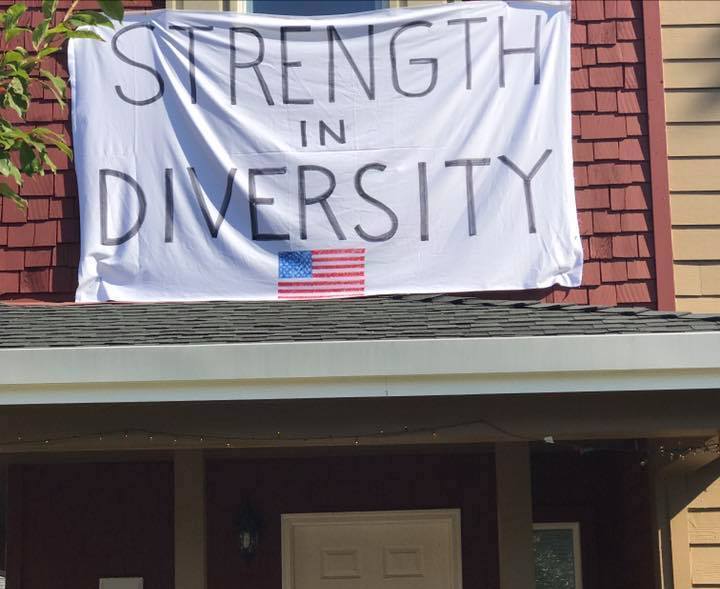 STRENGTH
IN
DIVERSITY